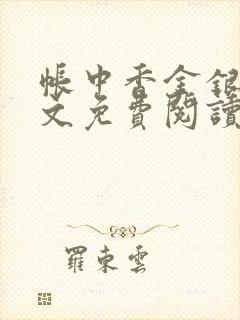 帳中香全銀
文免費閱讀
羅東雲